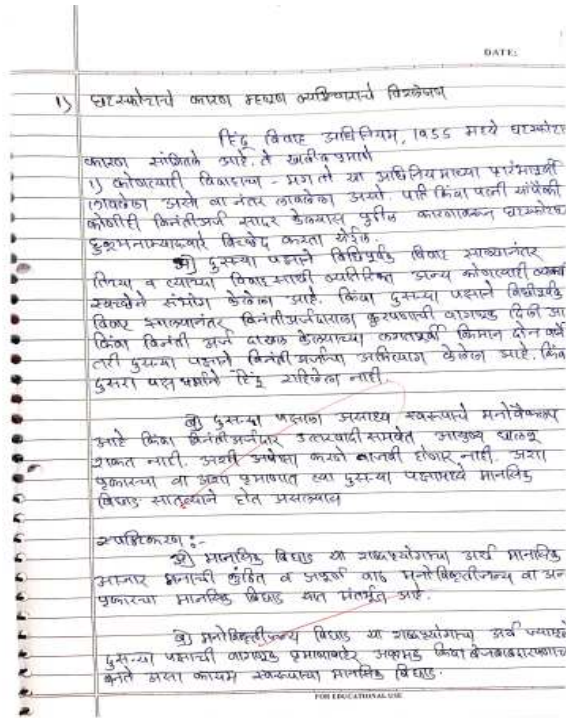 DATE:
1) घटस्फोटाचे कारण म्हणून व्यभिचाराचे विश्लेषण
हिंदू विवाह अधिनियम, 1955 मध्ये घटस्फोटा
कारण सांगितले आहे. ते खालीलप्रमाणे
1) कोणत्याही विवाहाचा - मग तो या अधिनियमाच्या प्रारंभापूर्वी
लावलेला असो वा नंतर लावलेला असो. पति किंवा पत्नी यांपैकी
कोणीही विनंतीअर्ज सादर केल्यास पुढील कारणावरून घटस्फोट
हुकूमनाम्याद्वारे विच्छेद करता येईल.
अ) दुसऱ्या पक्षाने विधिपूर्वक विवाह झाल्यानंतर
तिच्या व त्याच्या विवाहसाथी व्यतिरिक्त अन्य कोणत्याही व्यक्ती
स्वेच्छेने संभोग केलेला आहे. किंवा दुसऱ्या पक्षाने विधीपूर्वक
विवाह झाल्यानंतर विनंतीअर्जदाराला क्रुरपणाची वागणूक दिली आ
किंवा विनंती अर्ज दाखल केल्याच्या लगतपूर्वी किमान दोन वर्षे
तरी दुसऱ्या पक्षाने विनंतीअर्जाचा अभित्याग केलेला आहे. किंवा
दुसरा पक्ष धर्माने हिंदू राहिलेला नाही.
ब) दुसऱ्या पक्षाला असाध्य स्वरूपाचे मनोवैकल्य
आहे किंवा विनंतीअर्जदार उत्तरवादी समवेत आयुष्य घालवू
शकत नाही. अशी अपेक्षा करणे वाजवी होणार नाही. अशा
प्रकारचा वा अशा प्रमाणात त्या दुसऱ्या पक्षामध्ये मानसिक
बिघाड सातत्याने होत असल्यास
स्पष्टिकरण :-
अ) मानसिक बिघाड या शब्दप्रयोगाचा अर्थ मानसिक
आजार मनाची कुंठित व अपूर्ण वाढ मनोविकृतीजन्य वा अन
प्रकारचा मानसिक बिघाड यात अंतर्भूत आहे.
ब) मनोविकृतीजन्य बिघाड या शब्दप्रयोगाचा अर्थ ज्यामुळे
दुसऱ्या पक्षाची वागणूक प्रमाणाबाहेर आक्रमक किंवा बेजबाबदारपणाच
बनते असा कायम स्वरूपाचा मानसिक बिघाड.
FOR EDUCATIONAL USE